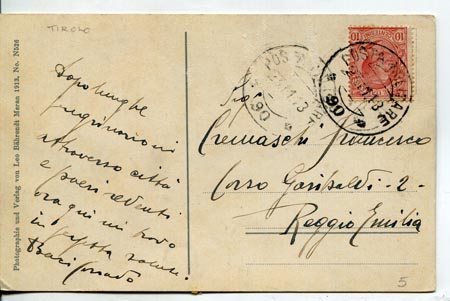 TIROLO
Photographie und Verlag von Leo Bährendt Meran 1913. No. N526
Dopo lunghe
peregrinazioni
attraverso città
e paesi redenti
ora qui mi trovo
in saluti
Baci Corrado
POSTA MILITARE
90
POSTA MILITARE
90
10
Sig.
Cremaschi Francesco
Corso Garibaldi - 2 -
Reggio Emilia
5